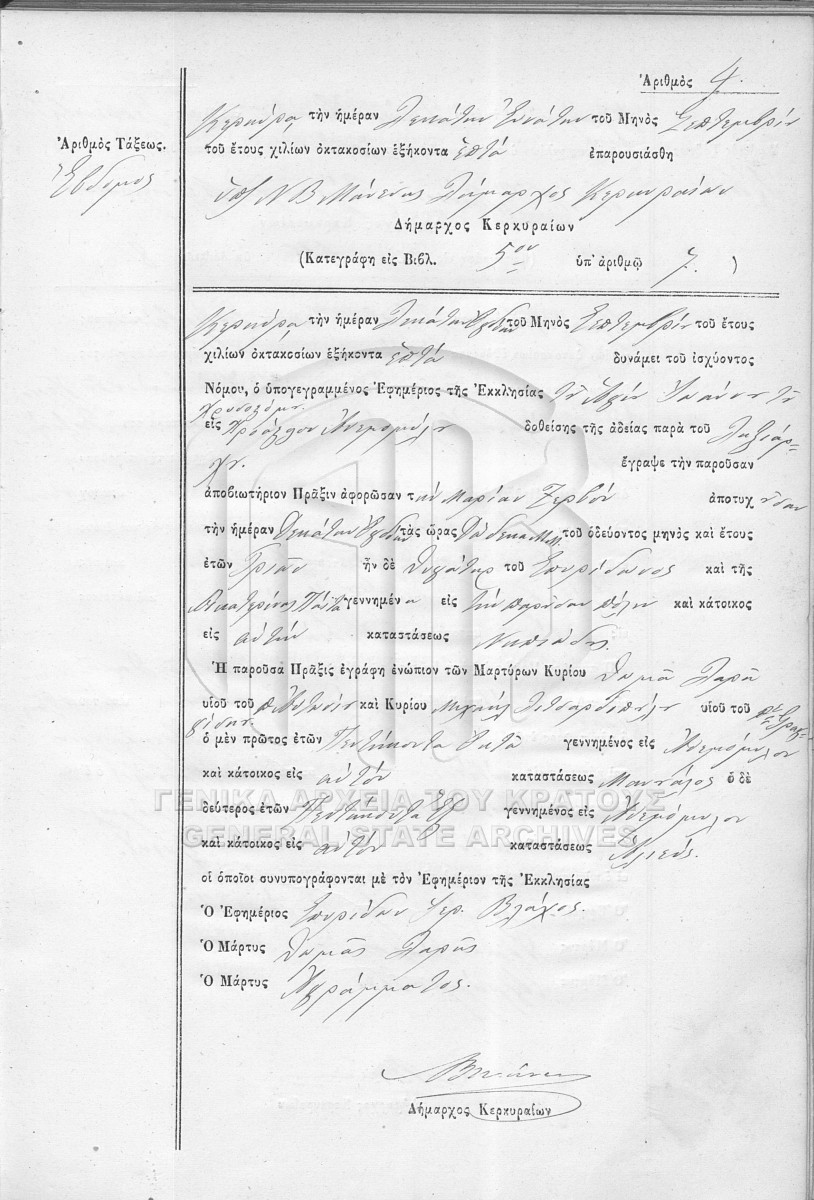 Ἀριθμὸς
Κερκύρα, τὴν ἡμέραν Δεκάτην Ἐνάτην τοῦ Μηνὸς Σεπτεμβρίου
Ἀριθμὸς Τάξεως.
τοῦ ἔτους χιλίων ὀκτακοσίων ἑξήκοντα ἑπτά ἐπαρουσιάσθη
Ἕβδομος
Ν Β Μάνεσης Δήμαρχος Κερκυραίων
Δήμαρχος Κερκυραίων
(Κατεγράφη εἰς Βιβλ. 5ον ὑπ' ἀριθμῷ 7. )
Κερκύρα, τὴν ἡμέραν Δεκάτην τοῦ Μηνὸς Σεπτεμβρίου τοῦ ἔτους
χιλίων ὀκτακοσίων ἑξήκοντα ἑπτά δυνάμει τοῦ ἰσχύοντος
Νόμου, ὁ ὑπογεγραμμένος Ἐφημέριος τῆς Ἐκκλησίας τοῦ Ἁγίου Ἰωάννου τοῦ
Χρυσοστόμου
εἰς Ἀνεμομύλου δοθείσης τῆς ἀδείας παρὰ τοῦ Ληξιάρ-
χου. ἔγραψε τὴν παροῦσαν
ἀποβιωτήριον Πρᾶξιν ἀφορῶσαν τ ὴν Μαρίαν Ζερβοῦ ἀποτυχ οῦσαν
τὴν ἡμέραν Δεκάτην τὰς ὥρας Δώδεκα τοῦ ὁδεύοντος μηνὸς καὶ ἔτους
ἐτῶν Τριῶν ἦν δὲ θυγάτηρ τοῦ Σπυρίδωνος καὶ τῆς
Αἰκατερίνας γεννημένα εἰς τὴν παροῦσαν πόλιν καὶ κάτοικος
εἰς αὐτήν καταστάσεως Νηπιώδης.
Ἡ παροῦσα Πρᾶξις ἐγράφη ἐνώπιον τῶν Μαρτύρων Κυρίου Θωμᾶ Λαρῆ
υἱοῦ τοῦ π. Ἀντωνίου καὶ Κυρίου Μιχαὴλ υἱοῦ τοῦ
ὁ μὲν πρῶτος ἐτῶν Πεντήκοντα ὀκτὼ γεννημένος εἰς Ἀνεμόμυλον
καὶ κάτοικος εἰς αὐτόν καταστάσεως ὁ δὲ
ΓΕΝΙΚΑ ΑΡΧΕΙΑ ΤΟΥ ΚΡΑΤΟΥΣ
δεύτερος ἐτῶν Πεντήκοντα ἓξ γεννημένος εἰς Ἀνεμόμυλον
GENERAL STATE ARCHIVES
καὶ κάτοικος εἰς αὐτόν καταστάσεως Ἁλιεύς.
οἱ ὁποῖοι συνυπογράφονται μὲ τὸν Ἐφημέριον τῆς Ἐκκλησίας
Ὁ Ἐφημέριος Σπυρίδων Ἱερ. Βλάχος.
Ὁ Μάρτυς Θωμᾶς Λαρῆς
Ὁ Μάρτυς Ἀγράμματος.
Δήμαρχος Κερκυραίων